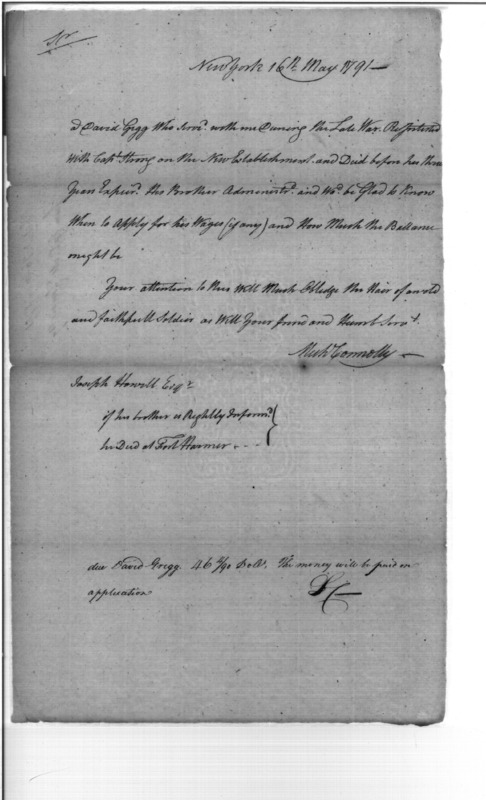 Sr
New York 16th May 1791
a David Gregg Who Serv'd with me During the Late War. Reinlisted
With Capt. Strong on the New Establishment and Died before his three
Years Expir'd. His Brother Administ'd. and Wd. be Glad to Know
When to Apply for his Wages (if any) and How Much the Ballance
might be
Your attention to this Will Much Obledge the Heir of an old
and faithfull Soldier as Well Your friend and Humbl Servt.
Michl Connolly
Joseph Howell Esqr
if his brother is Rightly Inform'd
he Died at Fort Harmer
due David Gregg. 46 /90 Dolls. The money will be paid on
application